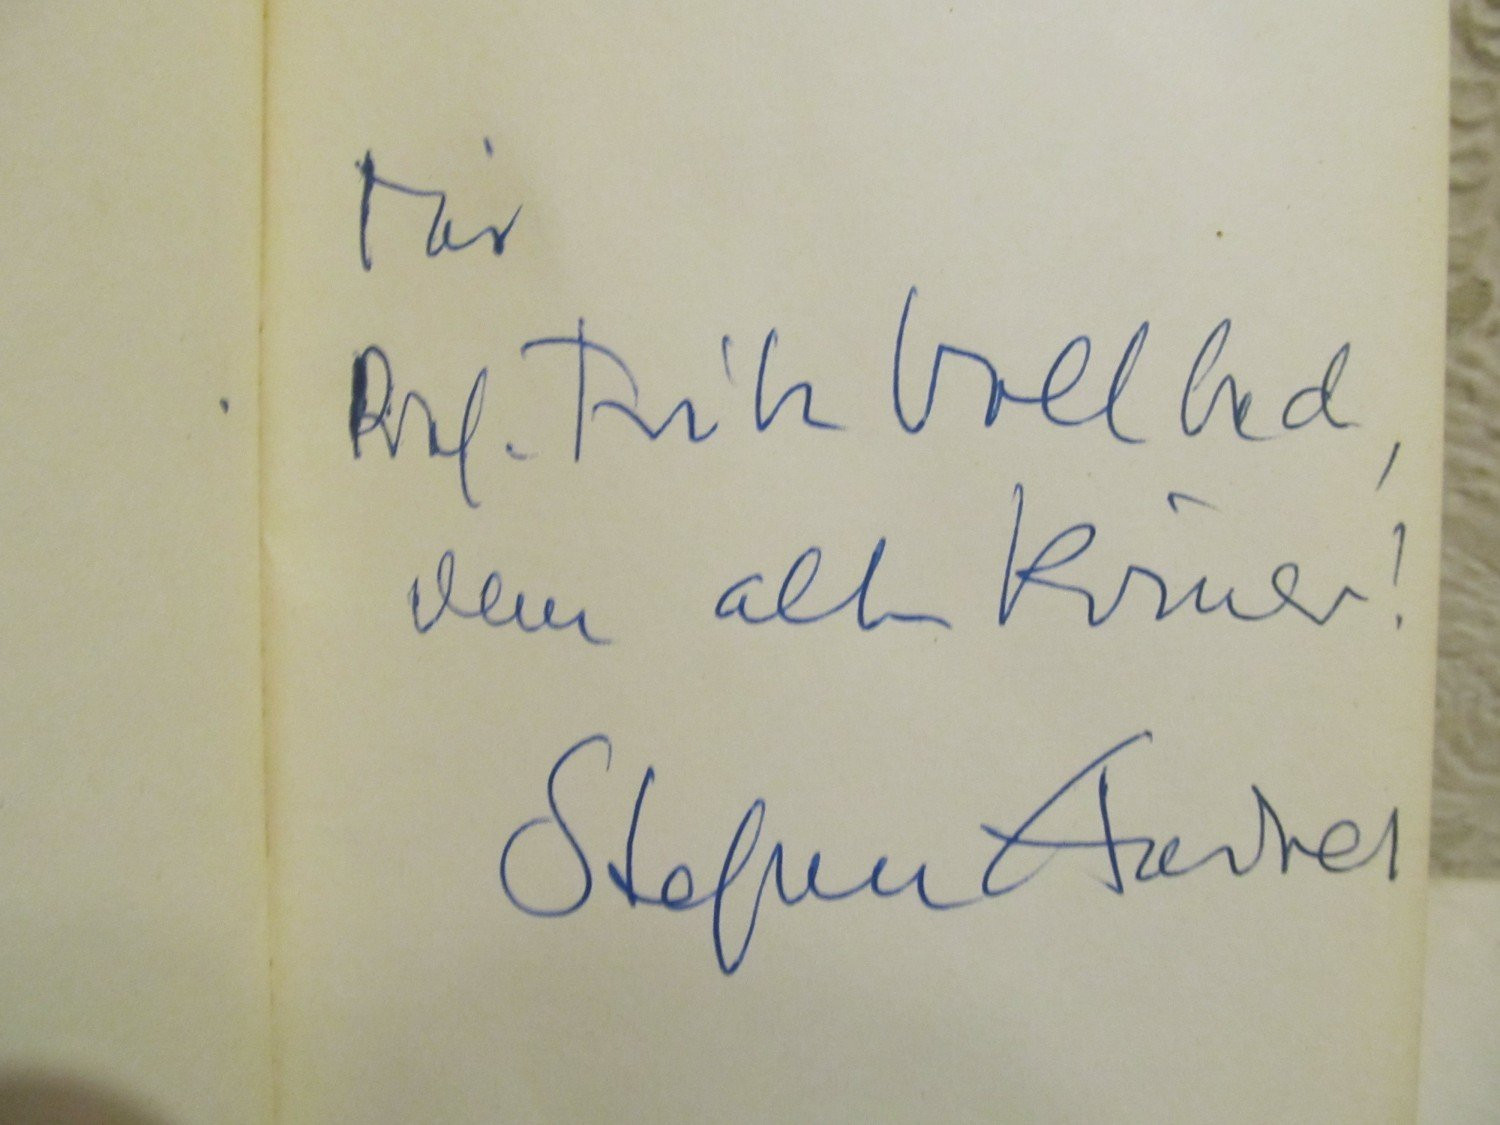 Für
Prof. Fritz Vollbed,
dem alten Römer!
Stefan Andres